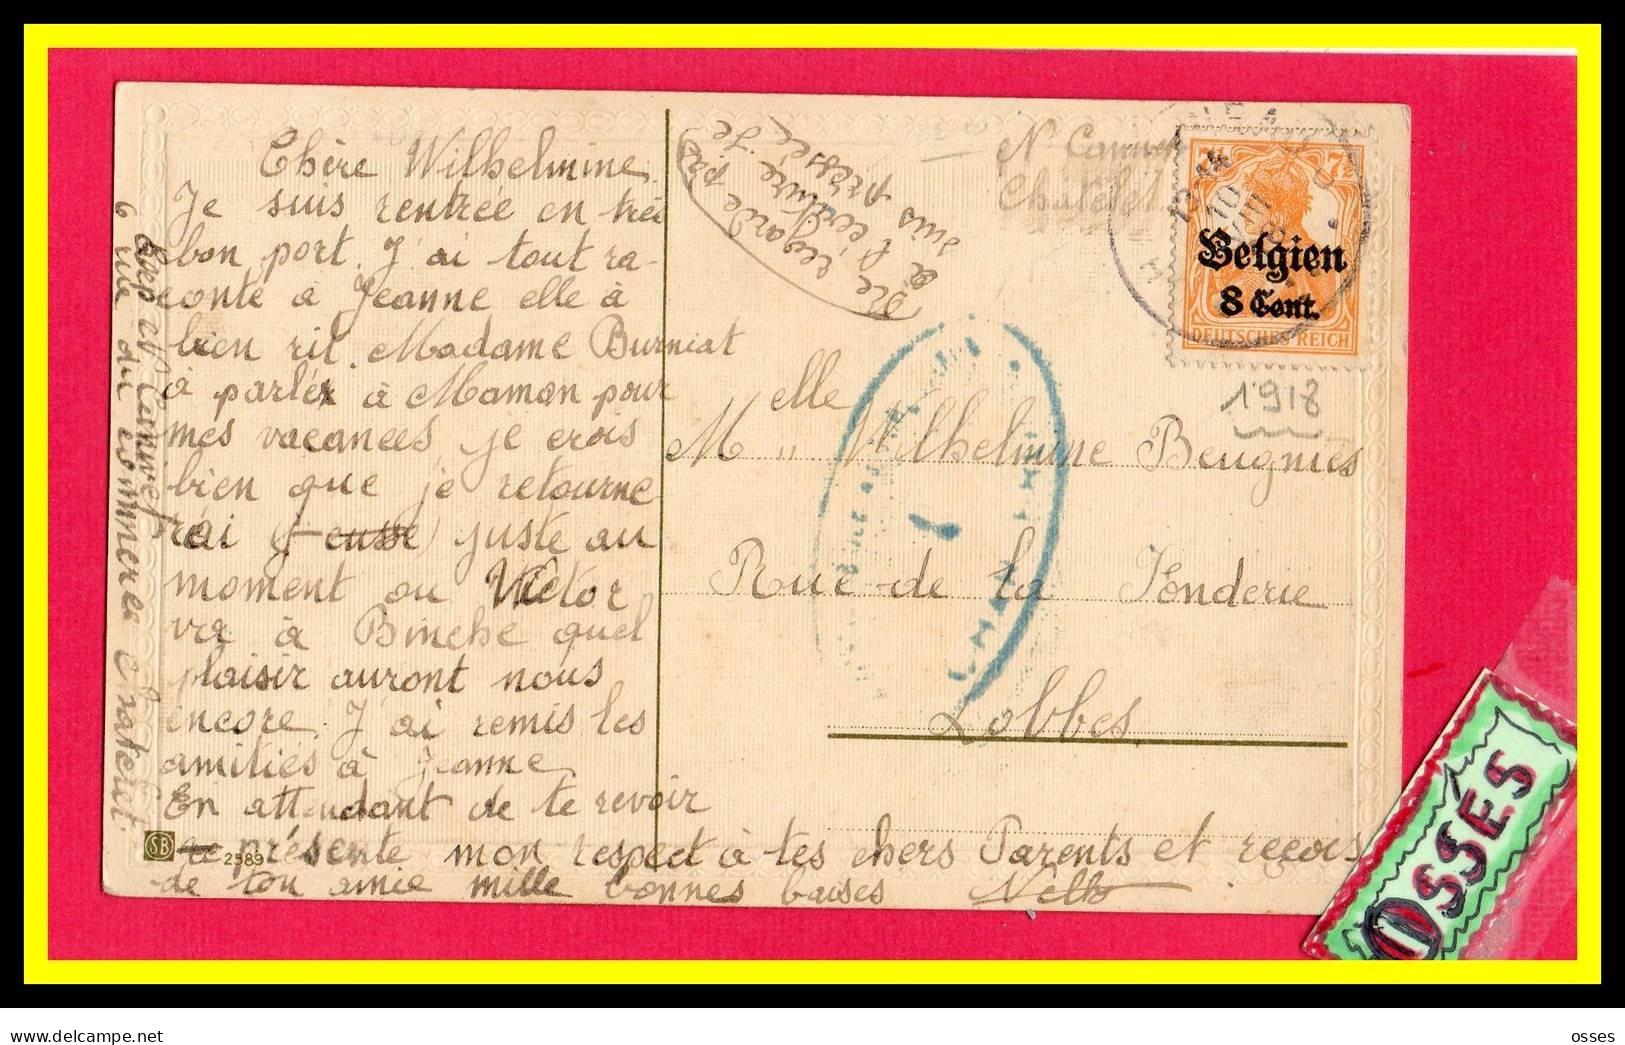 Chère Wilhelmine
Je suis rentrée en très
bon port. J'ai tout ra-
conté à Jeanne elle à
bien rit. Madame Burniat
à parler à Maman pour
mes vacances, je crois
bien que je retourne
rai (      ) juste au
moment ou Victor
va à Binche quel
plaisir auront nous
encore. J'ai remis les
amitiés à Jeanne
En attendant de te revoir
présente mon respect à tes chers Parents et reçois
de ton amie mille bonnes baises Nelly
SB 2589
6 rue du commerce Chatelet.
Ne regarde pas
à l'écriture Je
suis pressée
Chatelet
12-14
10
VIII
7½ 7½
Belgien
8 Cent.
DEUTSCHES REICH
1918
Melle Wilhelmine Beugnies
Rue de la Fonderie
Lobbes
OSSÉS
osses
DELCAMPE.NET